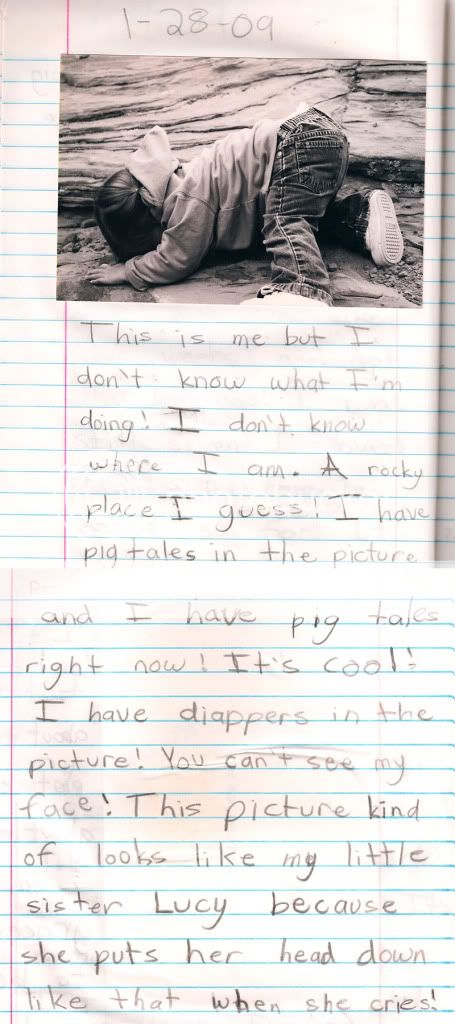 1-28-09
This is me but I
don't know what I'm
doing! I don't know
where I am. A rocky
place I guess! I have
pig tales in the picture
and I have pig tales
right now! It's cool!
I have diappers in the
picture! You can't see my
face! This picture kind
of looks like my little
sister Lucy because
she puts her head down
like that when she cries!